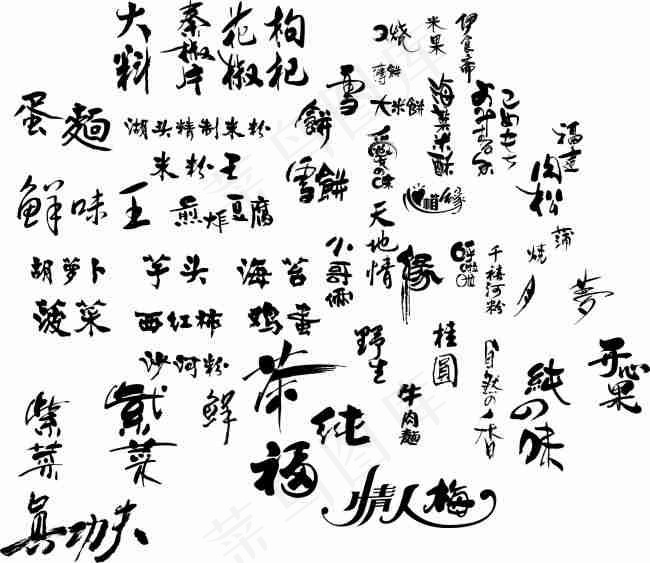 大料
秦椒片
花椒
枸杞
口烧
米果
伊食帝
薄餅
雪
大米餅
海菜米酥
福建
肉松
蛋麵
湖头精制米粉
餅
米粉王
雪餅
鮮味王
煎炸豆腐
天地情
小哥俩
緣
千禧河粉
燒
夢
胡萝卜
芋头
海苔
菠菜
西红柿
鸡蛋
沙河粉
野生
桂圓
自然の香
純の味
开心果
茶
鮮
纯
牛肉麵
紫菜
紫菜
福
情人梅
真功夫